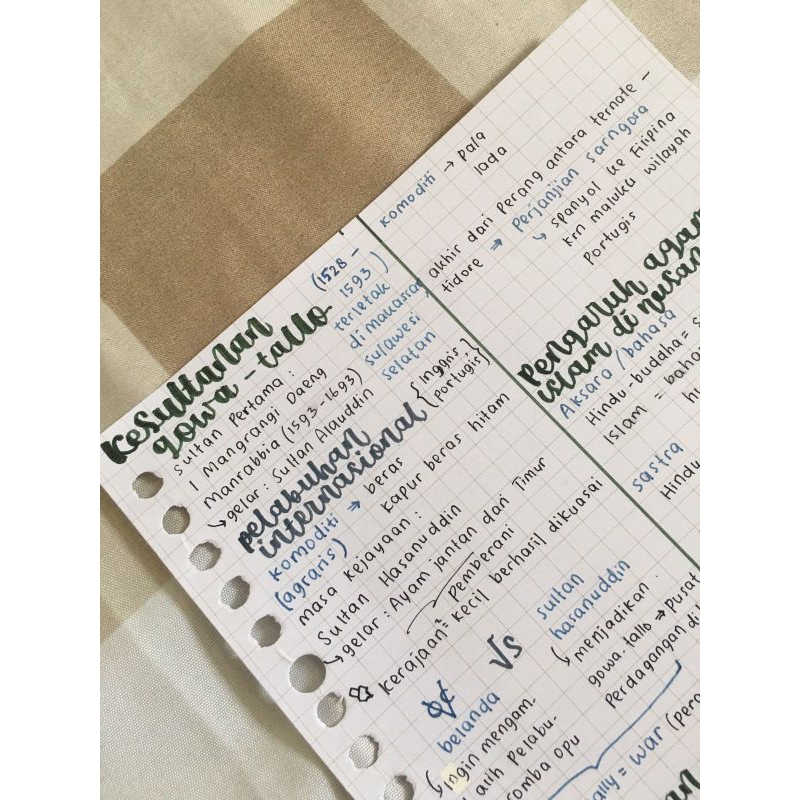 Kesultanan
gowa - tallo
(1528 -
1593)
terletak
di makassar
sulawesi
selatan
Sultan Pertama :
I Mangrangi Daeng
Manrabbia (1593-1693)
↳ gelar : Sultan Alauddin
pelabuhan
internasional { Inggris,
Portugis }
komoditi ⇒ beras
(agraris) kapur beras hitam
masa kejayaan :
Sultan Hasanuddin
↳ gelar : Ayam jantan dari Timur
Pemberani
Kerajaan² kecil berhasil dikuasai
VOC vs sultan
hasanuddin
belanda
↳ ingin mengam-
alih Pelabu-
somba opu
↳ menjadikan
gowa-tallo ⇒ pusat
Perdagangan di
= war
komoditi → pala
lada
akhir dari Perang antara ternate -
tidore ⇒ Perjanjian sarngosa
↳ spanyol ke Filipina
krn maluku wilayah
Portugis
Pengaruh agam
islam di nusan
Aksara / bahasa
Hindu-buddha =
Islam = baha
sastra
Hindu